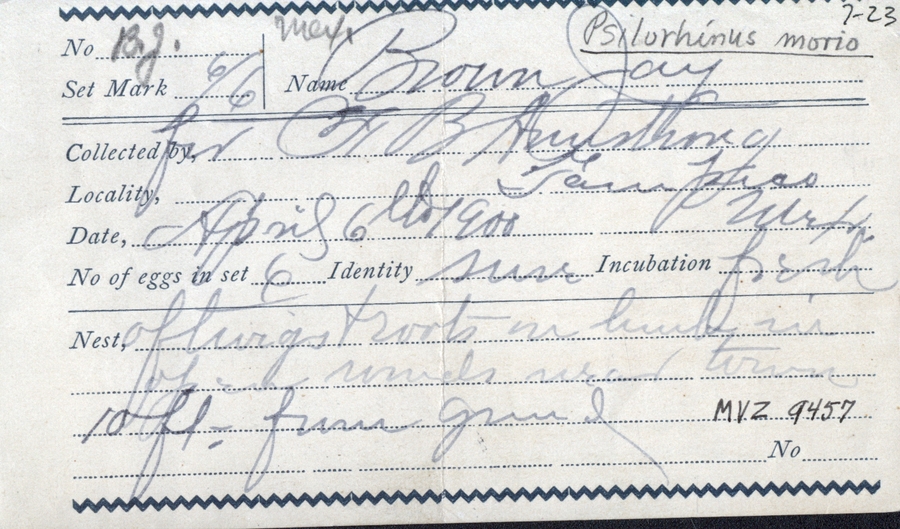 7-23
No B.J. Mex. Psilorhinus morio
Set Mark 6/6 Name Brown Jay
Collected by, for F B Armstrong
Locality, Tampico
Date, April 6th 1900 Mex.
No of eggs in set 6 Identity sure Incubation fresh
Nest, of twigs & roots in bush in
open woods near town
10 ft. from ground
MVZ 9457
No